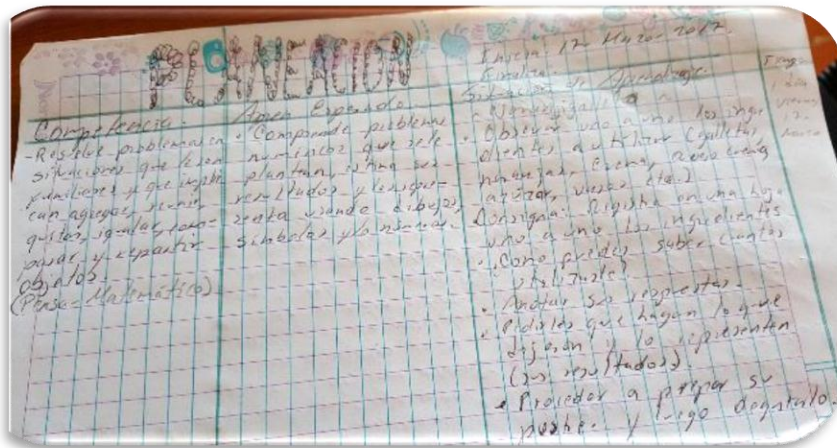 PLANEACION
Competencia.
- Resuelve problemas en
situaciones que le son
familiares y que impli-
can agregar, reunir,
quitar, igualar, com-
parar y repartir
objetos.
(Pensa- Matemático)
Apren Esperado
• Comprende problemas
numéricos que se le
plantean, estima sus
resultados y los repre-
senta usando dibujos,
símbolos y/o números.
Inicia: 17- Marzo- 2017.
Finaliza:
Situación de Aprendizaje.
• Observar uno a uno los ingre
dientes a utilizar (galletas,
naranjas, crema,
azúcar, vasos etc.)
Consigna: Registra en una hoja
uno a uno los ingredientes
• ¿Como puedes saber cuantos
utilizaste?
• Anotar sus respuestas.
• Pedirles que hagan lo que
dijeron y lo representen
(sus resultados).
• Proceder a preparar su
postre. y luego degustarlo.
Tiempo
1 día
viernes
17-
Marzo